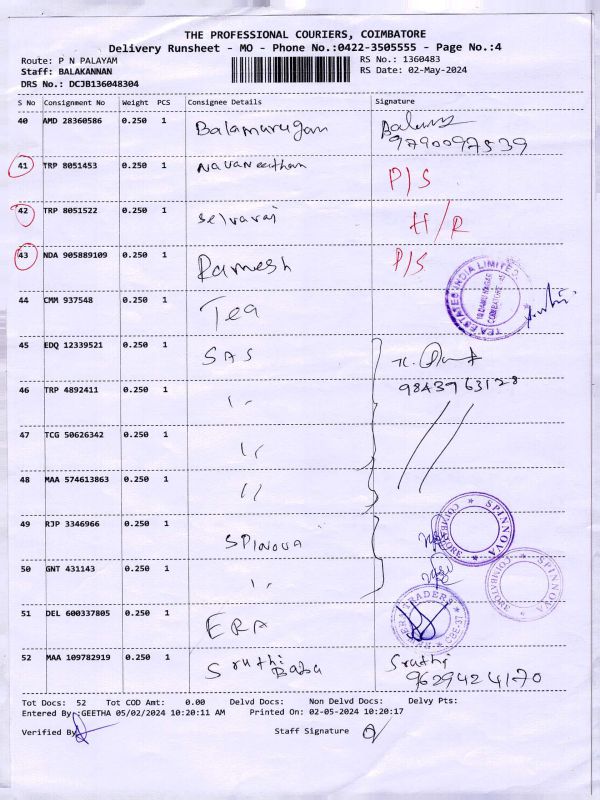 THE PROFESSIONAL COURIERS, COIMBATORE
Delivery Runsheet - MO - Phone No.:0422-3505555 - Page No.:4
Route: P N PALAYAM
RS No.: 1360483
Staff: BALAKANNAN
RS Date: 02-May-2024
DRS No.: DCJB136048304
S No Consignment No Weight PCS Consignee Details Signature
40 AMD 28360586 0.250 1 Balamurugan
9790097539
41 TRP 8051453 0.250 1 Navaneethan P/S
42 TRP 8051522 0.250 1 Selvaraj H/R
43 NDA 905889109 0.250 1 Ramesh P/S
TEA ESTATES INDIA LIMITED
COIMBATORE
44 CMM 937548 0.250 1 Tea
45 EDQ 12339521 0.250 1 SAS
9843963128
46 TRP 4892411 0.250 1 ''
47 TCG 50626342 0.250 1 ''
48 MAA 574613863 0.250 1 ''
49 RJP 3346966 0.250 1 SPinova
SPINNOVA * COIMBATORE *
50 GNT 431143 0.250 1 ''
SPINNOVA * COIMBATORE *
51 DEL 600337805 0.250 1 ERA
TRADERS
CBE-37
52 MAA 109782919 0.250 1 Sruthi Baba Sruthi
9629424170
Tot Docs: 52 Tot COD Amt: 0.00 Delvd Docs: Non Delvd Docs: Delvy Pts:
Entered By :GEETHA 05/02/2024 10:20:11 AM Printed On: 02-05-2024 10:20:17
Verified By Staff Signature